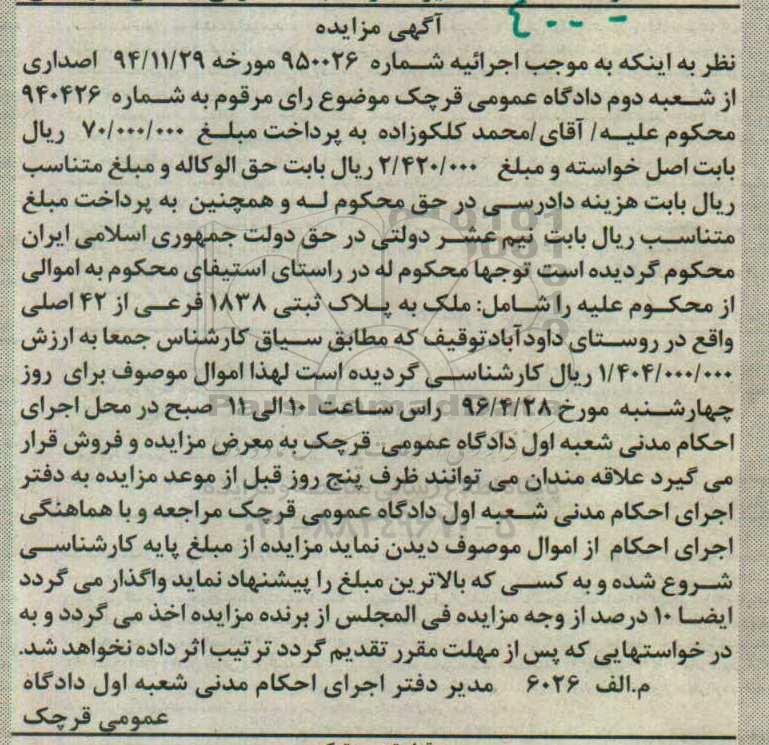 آگهی مزایده
نظر به اینکه به موجب اجرائیه شماره ۹۵۰۰۲۶ مورخه ۹۴/۱۱/۲۹ اصداری
از شعبه دوم دادگاه عمومی قرچک موضوع رای مرقوم به شماره ۹۴۰۴۲۶
محکوم علیه/ آقای/محمد کلکوزاده به پرداخت مبلغ ۷۰/۰۰۰/۰۰۰ ریال
بابت اصل خواسته و مبلغ ۲/۴۲۰/۰۰۰ ریال بابت حق الوکاله و مبلغ متناسب
ریال بابت هزینه دادرسی در حق محکوم له و همچنین به پرداخت مبلغ
متناسب ریال بابت نیم عشر دولتی در حق دولت جمهوری اسلامی ایران
محکوم گردیده است توجها محکوم له در راستای استیفای محکوم به اموالی
از محکوم علیه را شامل: ملک به پلاک ثبتی ۱۸۳۸ فرعی از ۴۲ اصلی
واقع در روستای داودآبادتوقیف که مطابق سیاق کارشناس جمعا به ارزش
۱/۴۰۴/۰۰۰/۰۰۰ ریال کارشناسی گردیده است لهذا اموال موصوف برای روز
چهارشنبه مورخ ۹۶/۴/۲۸ راس ساعت ۱۰ الی ۱۱ صبح در محل اجرای
احکام مدنی شعبه اول دادگاه عمومی قرچک به معرض مزایده و فروش قرار
می گیرد علاقه مندان می توانند ظرف پنج روز قبل از موعد مزایده به دفتر
اجرای احکام مدنی شعبه اول دادگاه عمومی قرچک مراجعه و با هماهنگی
اجرای احکام از اموال موصوف دیدن نماید مزایده از مبلغ پایه کارشناسی
شروع شده و به کسی که بالاترین مبلغ را پیشنهاد نماید واگذار می گردد
ایضا ۱۰ درصد از وجه مزایده فی المجلس از برنده مزایده اخذ می گردد و به
در خواستهایی که پس از مهلت مقرر تقدیم گردد ترتیب اثر داده نخواهد شد.
م.الف ۶۰۲۶ مدیر دفتر اجرای احکام مدنی شعبه اول دادگاه
عمومی قرچک